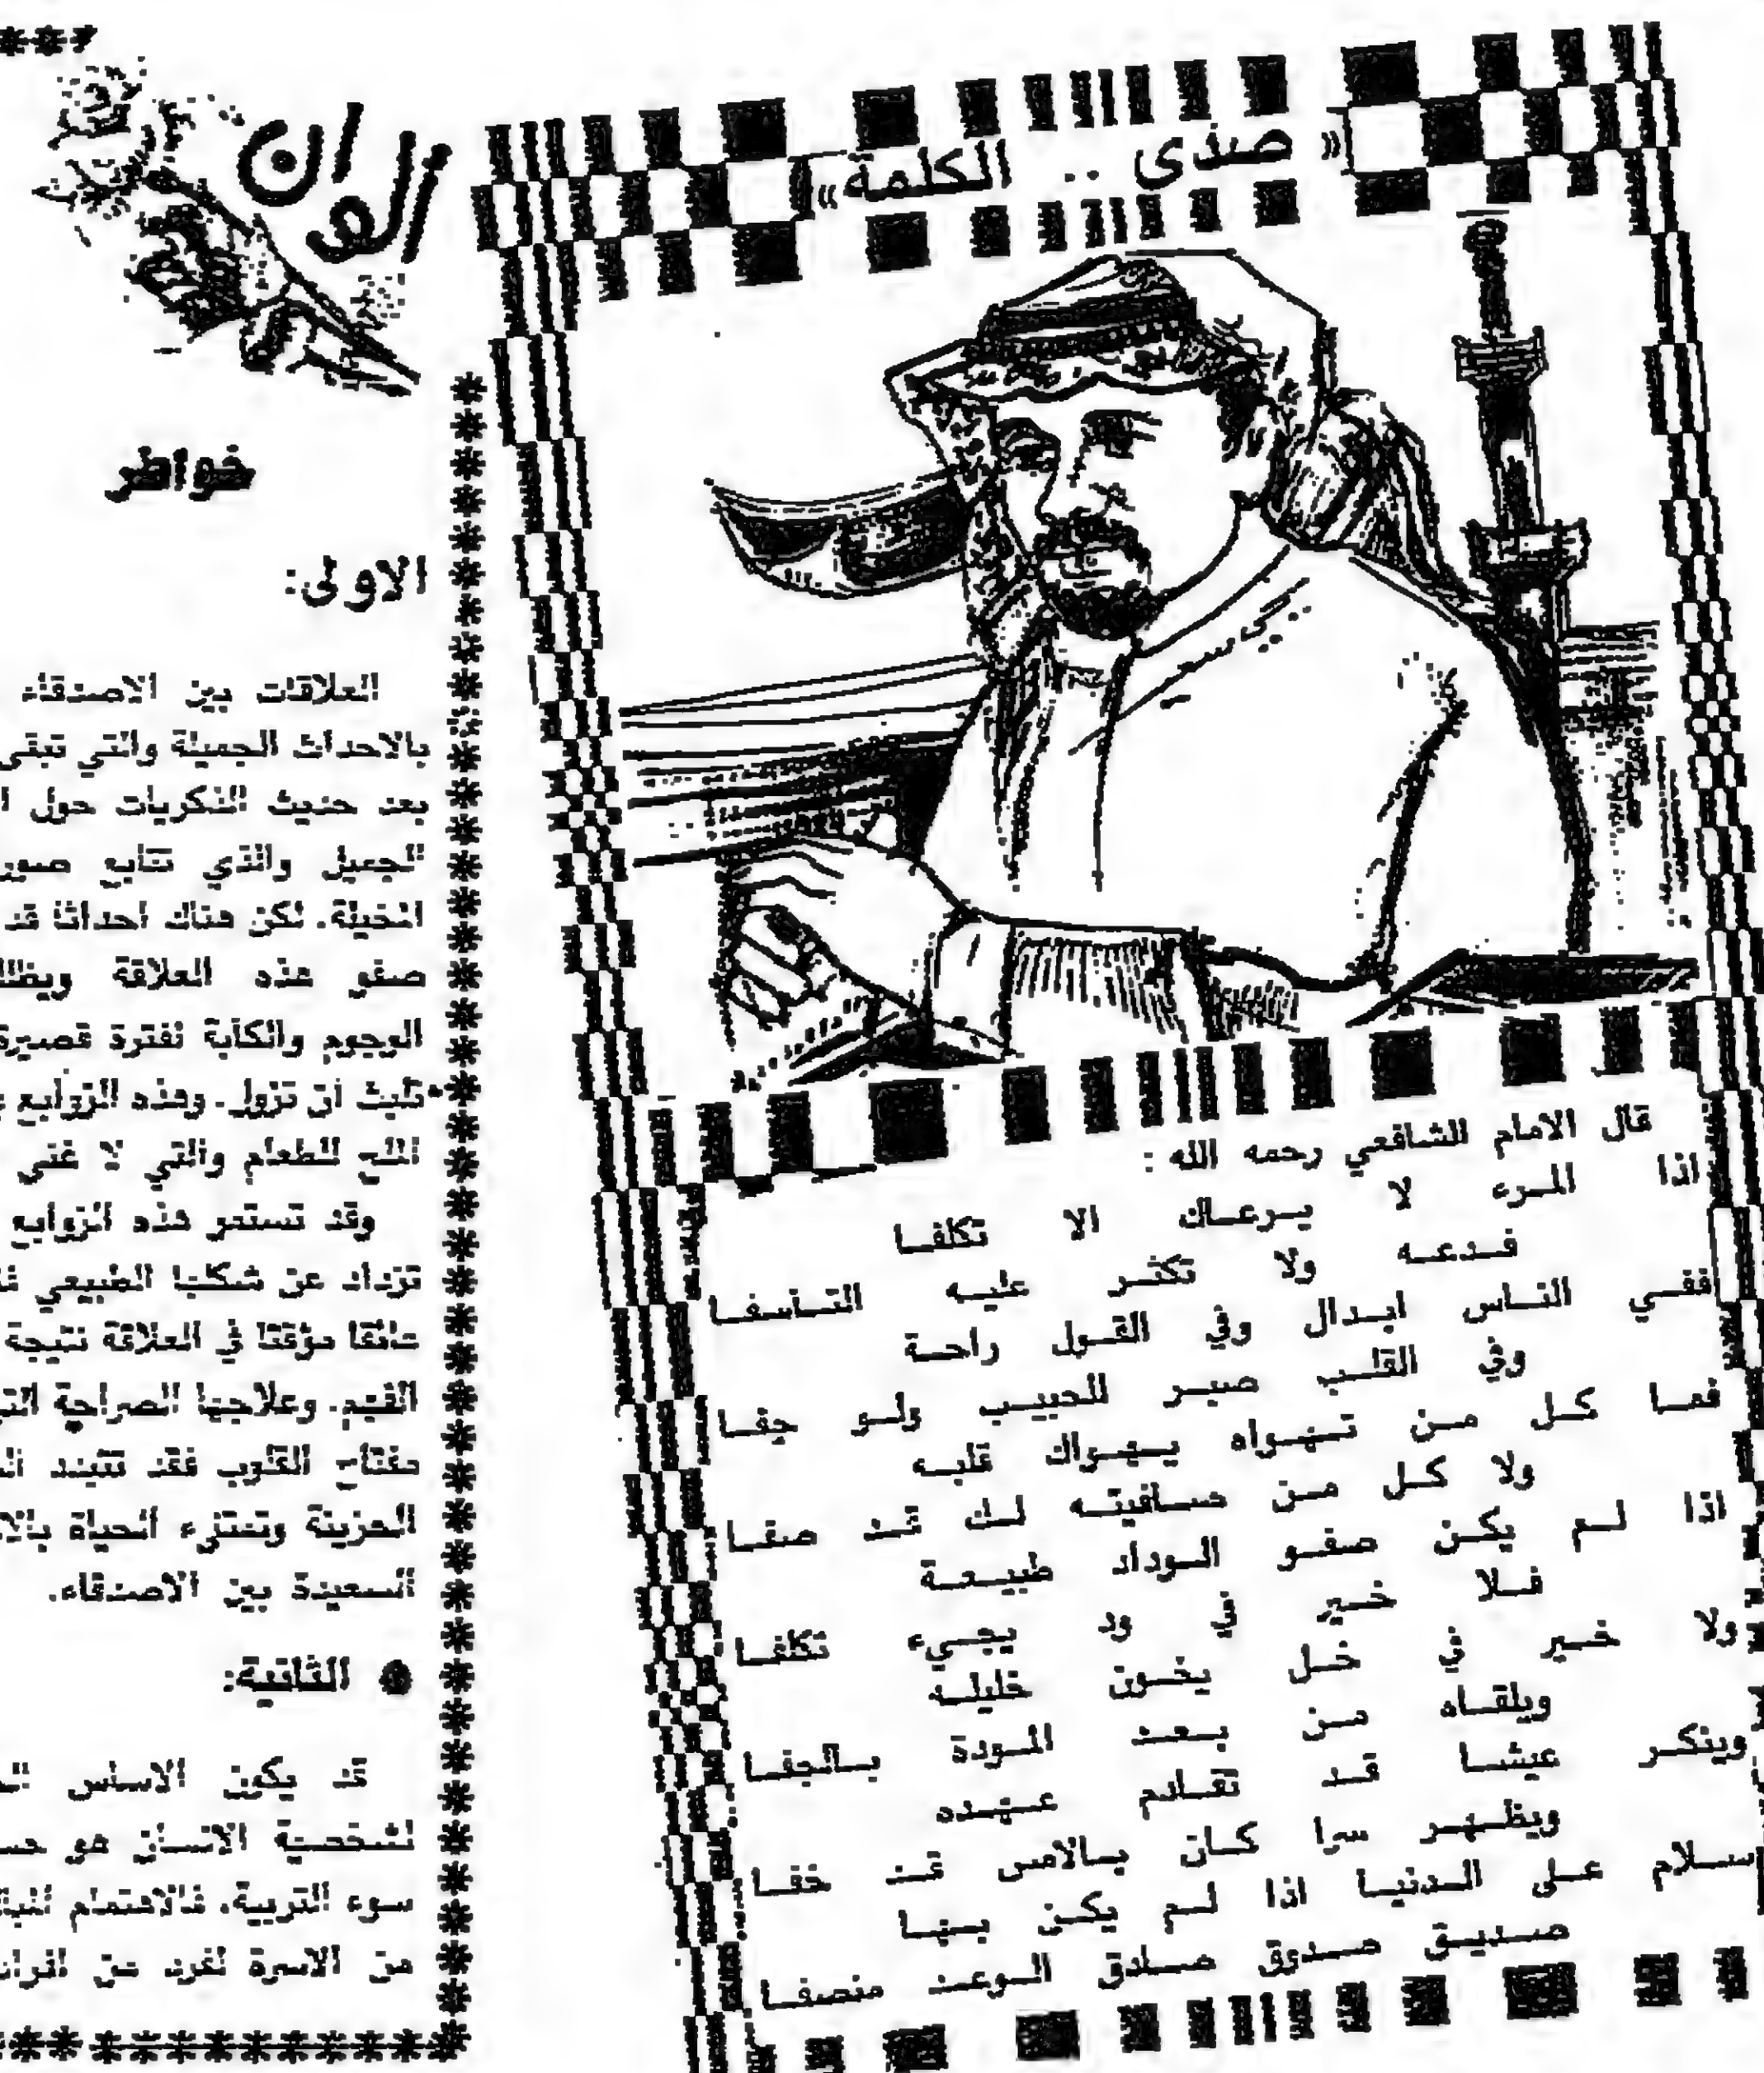 « صدى .. الكلمة »
قال الامام الشافعي رحمه الله :
اذا المرء لا يرعاك الا تكلفا
فدعه ولا تكثر عليه التاسفا
ففي الناس ابدال وفي القول راحة
وفي القلب صبر للحبيب ولو جفا
فما كل من تهواه يهواك قلبه
ولا كل من صافيته لك قد صفا
اذا لم يكن صفو الوداد طبيعة
فلا خير في ود يجيء تكلفا
ولا خير في خل يخون خليله
ويلقاه من بعد المودة بالجفا
وينكر عيشا قد تقادم عهده
ويظهر سرا كان بالامس قد خفا
سلام على الدنيا اذا لم يكن بها
صديق صدوق صادق الوعد منصفا
ألوان
خواطر
الاولى:
العلاقات بين الاصدقاء
بالاحداث الجميلة والتي تبقى
بعد حديث الذكريات حول
الجميل والذي تتابع صور
المخيلة. لكن هناك احداثا قد
صفو هذه العلاقة ويظلل
الوجوم والكآبة لفترة قصيرة
تلبث ان تزول. وهذه الزوابع
الملح للطعام والتي لا غنى
وقد تستمر هذه الزوابع
تزداد عن شكلها الطبيعي
عائقا مؤقتا في العلاقة نتيجة
الفهم. وعلاجها الصراحة
مفتاح القلوب فقد تتبدد
الحزينة وتمتزء الحياة
السعيدة بين الاصدقاء.
● الثانية:
قد يكون الاساس
لشخصية الانسان هو
سوء التربية. فالاهتمام
من الاسرة لفرد من